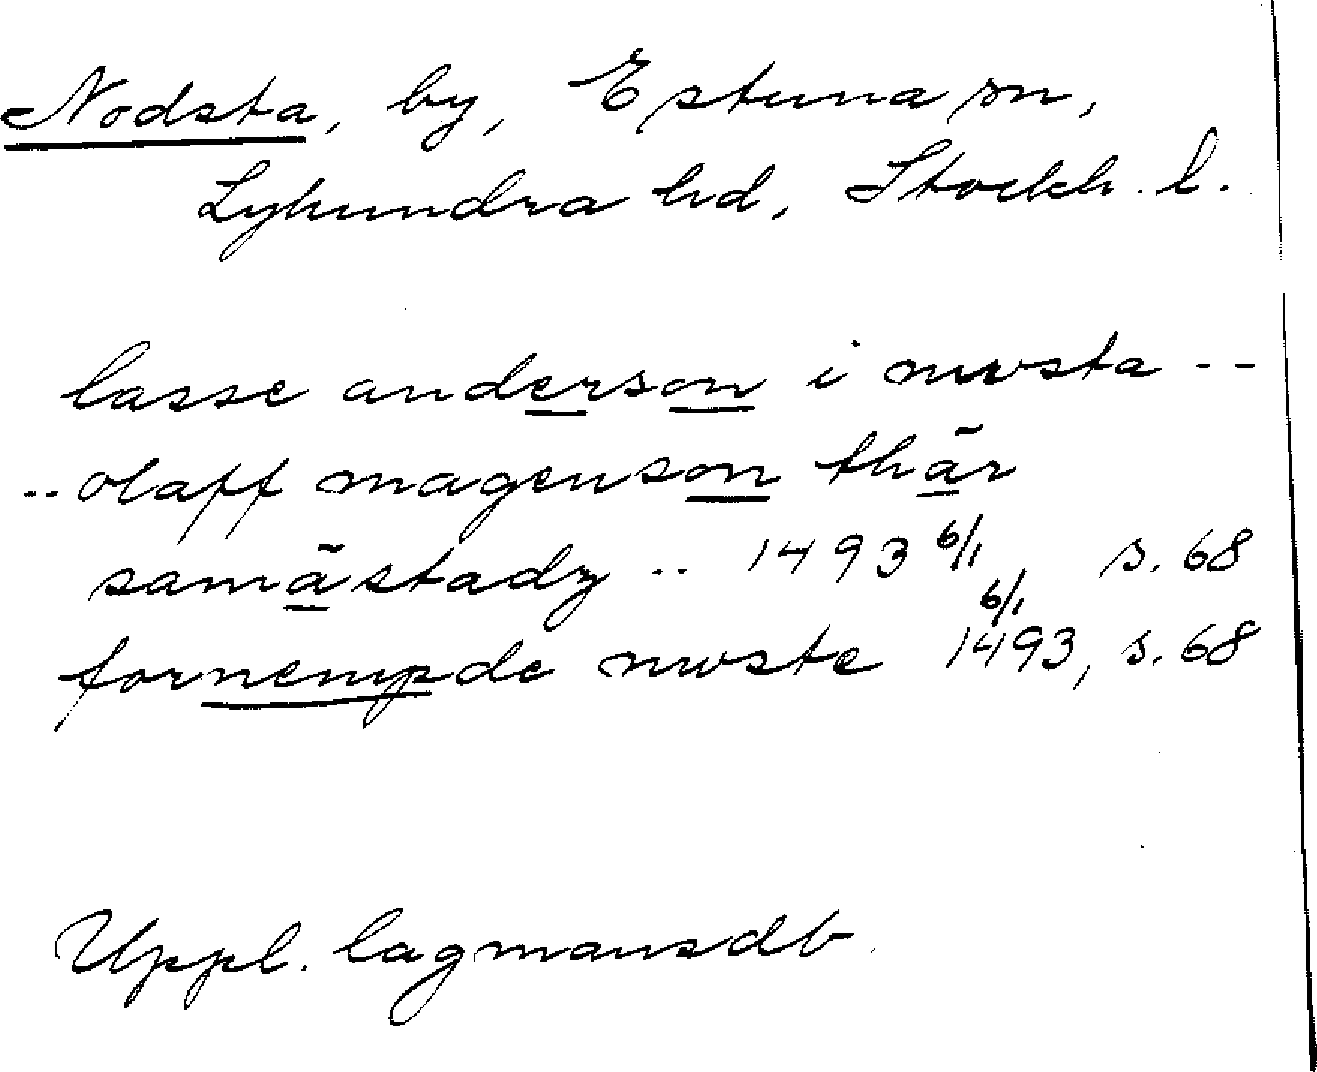 Nodsta, by, Estuna sn,
Lyhundra hd, Stockh. l.
lasse anderson i nwsta --
.. olaff magenson thär
samästadz .. 1493 6/1, s. 68
fornempde nwste 6/1 1493, s. 68
Uppl. lagmansdb.